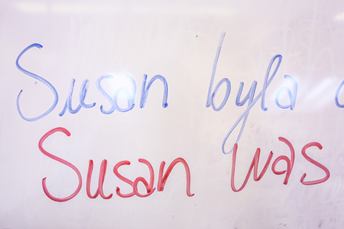 Susan byla
Susan was